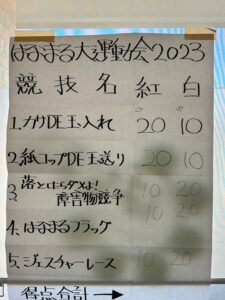 はなまる大運動会2023
競技名 紅 白
1.カゴDE玉入れ 20 10
2.紙コップDE玉送り 20 10
3.落としちゃダメよ! 10 20
障害物競争 10 20
4.はなまるフラッグ
5.ジェスチャーレース 10 20
得点合計→